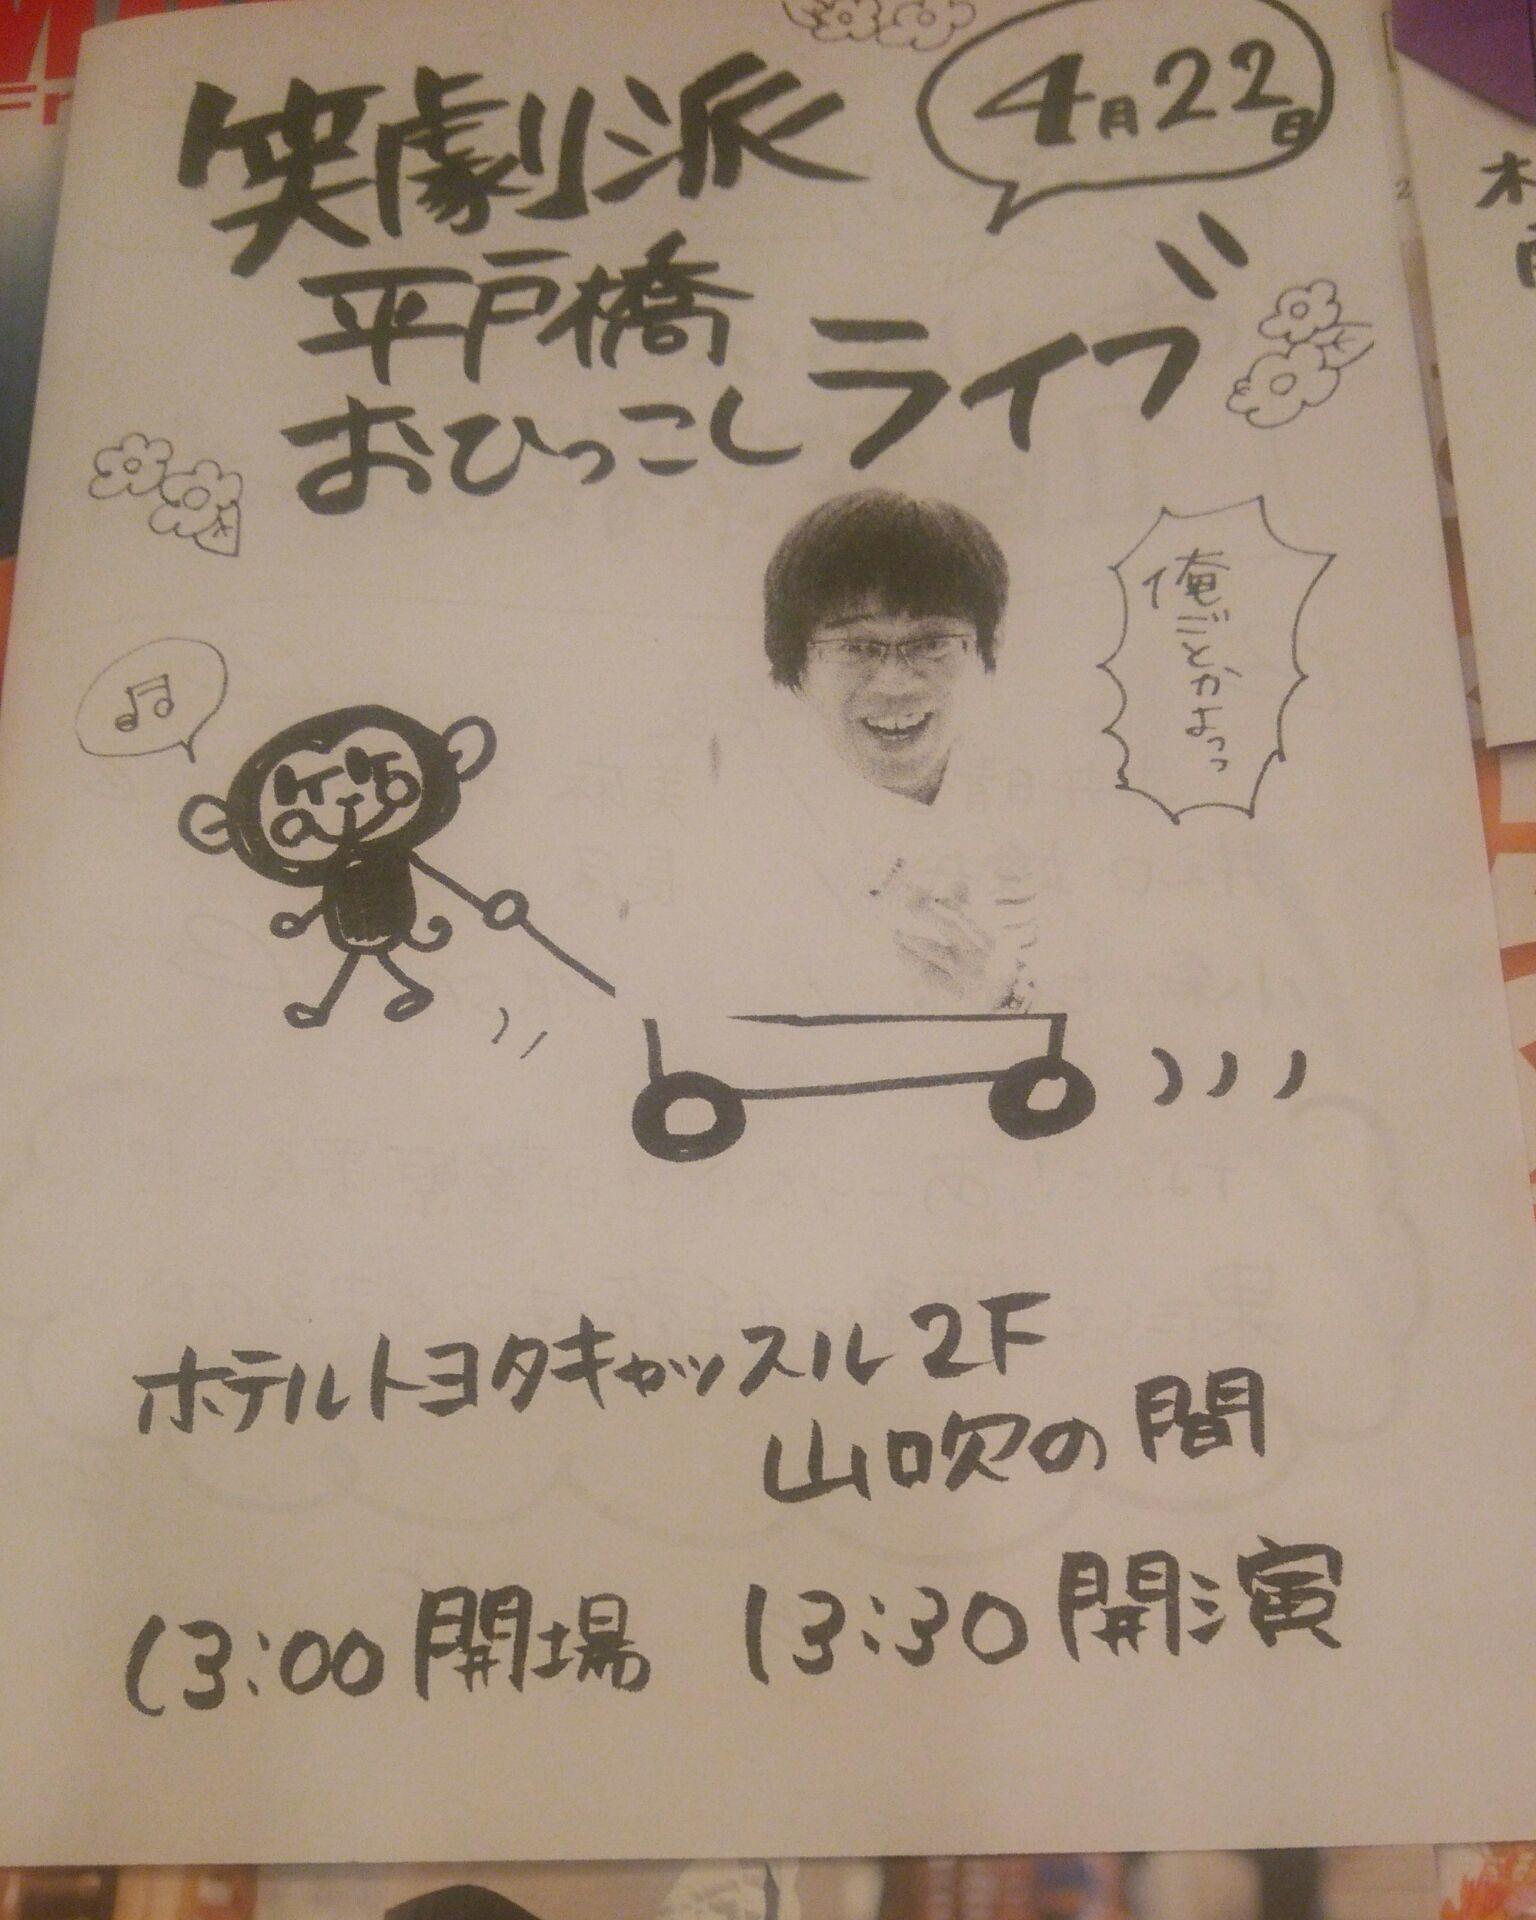 笑劇派
4月22日
平戸橋
おひっこしライブ
俺ごとかよっっ
ホテルトヨタキャッスル2F
山吹の間
13:00開場 13:30開演